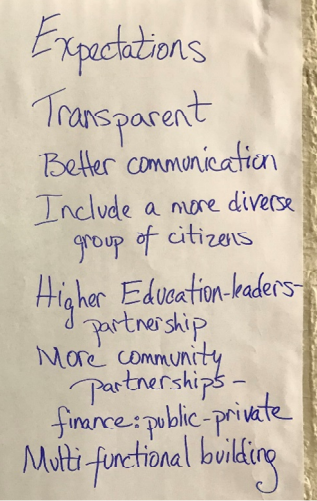 Expectations
Transparent
Better communication
Include a more diverse
group of citizens
Higher Education-leaders-
partnership
More community
partnerships-
finance: public-private
Multi functional building